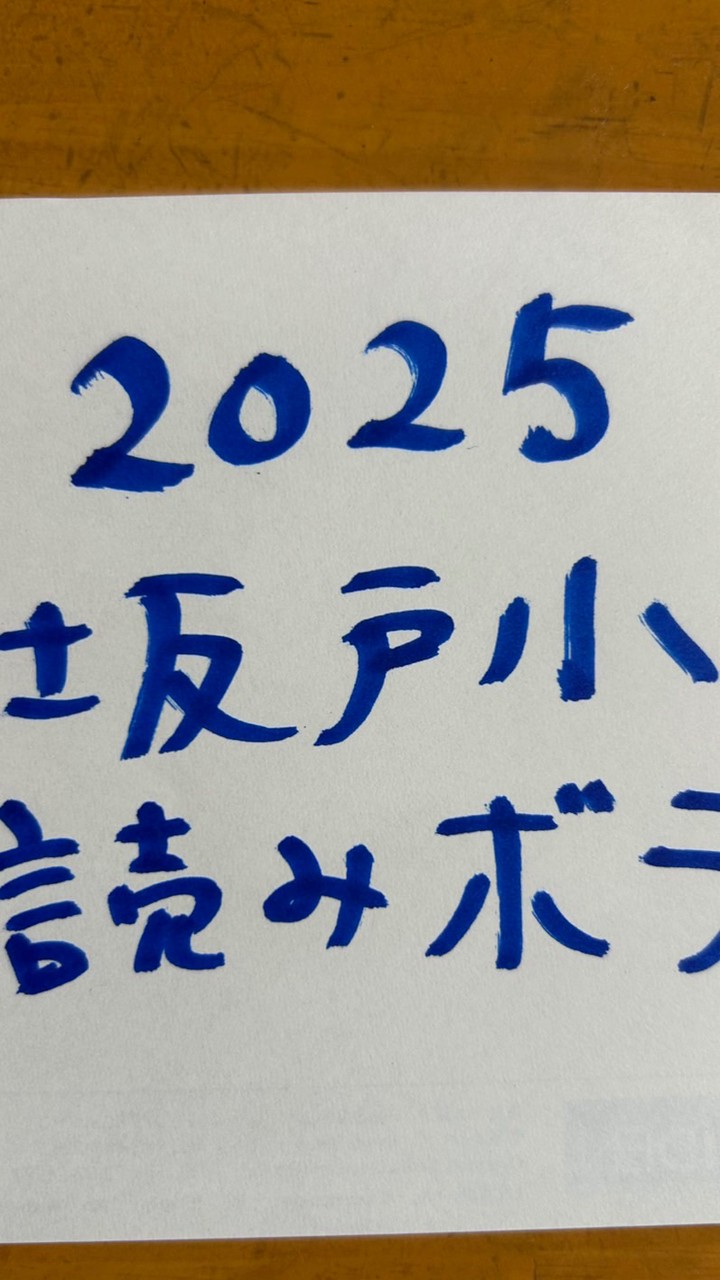 2025
坂戸小
読みボラ